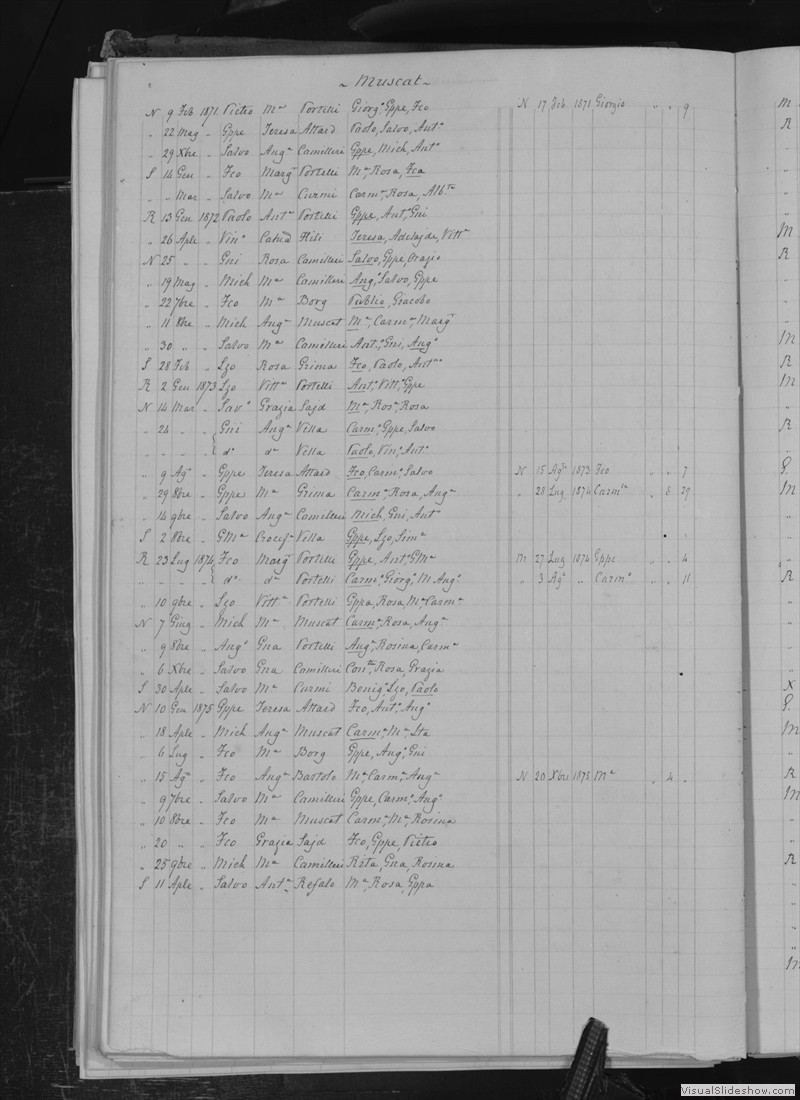 ~ Muscat ~
N 9 Feb 1871. Pietro Mª Portelli Giorgº, Gppe, Fco N 17 Feb. 1871. Giorgio " " 9
" 22 Mag " Gppe Teresa Attard Paolo, Salvo, Antº
" 29 Xbre " Salvo Angª Camilleri Gppe, Mich, Antº
S 14 Gen " Fco Margª Portelli Mª, Rosa, Fca
" " Mar " Salvo Mª Curmi Carmª, Rosa,
R 13 Gen 1872 Paolo Antª Portelli Gppe, Antº, Gni
" 26 Aple " Vinº Hili Teresa, Adelajde, Vittª
N 25 " " Gni Rosa Camilleri Salvo, Gppe, Orazio
" 19 Mag " Mich Mª Camilleri Angº, Salvo, Gppe
" 22 7bre " Fco Mª Borg Publio, Giacobo
" 11 8bre " Mich Angª Muscat Mª, Carmª, Margª
" 30 " " Salvo Mª Camilleri Antº, Gni, Angº
S 28 Feb " Lzo Rosa Grima Fco, Paolo,
R 2 Gen 1873 Lzo Vittª Portelli Antº, Vittº, Gppe
N 14 Mar " Savº Grazia Sajd Mª, Rosª, Rosa
" 24 " " Gni Angª Villa Carmº, Gppe, Salvo
" " " dº dª Villa Paolo, Vinº, Antº
" 9 Agº " Gppe Teresa Attard Fco, Carmº, Salvo N 15 Agº 1873 Fco " " 7
" 29 8bre " Gppe Mª Grima Carmª, Rosa, Angª " 28 Lug 1874 " 8 29
" 14 9bre " Salvo Angª Camilleri Mich, Gni, Antº
S 2 8bre " GMª Villa Gppe, Lzo, Simº
R 23 Lug 1874 Fco Margª Portelli Gppe, Antº, GMª 27 Lug 1874 Gppe " " 4
" " " dº dª Portelli Carmº, Giorgº, M Angº " 3 Agº " Carmº " " 11
" 10 9bre " Lzo Vittª Portelli Gppa, Rosa, Mª, Carmª
N 7 Giug " Mich Mª Muscat Carmª, Rosa, Angª
" 9 8bre " Angº Gna Portelli Angª, Rosina, Carmª
" 6 Xbre " Salvo Gna Camilleri Rosa, Grazia
S 30 Aple " Salvo Mª Curmi Benigº, Lzo, Paolo
N 10 Gen 1875 Gppe Teresa Attard Fco, Antº, Angº
" 18 Aple " Mich Angª Muscat Carmª, Mª
" 6 Lug " Fco Mª Borg Gppe, Angº, Gni
" 15 Agº " Fco Angª Bartolo Mª, Carmª, Angª N 20 Xbre 1875 Mª " 4 "
" 9 7bre " Salvo Mª Camilleri Gppe, Carmº, Angº
" 10 8bre " Fco Mª Muscat Carmª, Mª, Rosina
" 20 " " Fco Grazia Sajd Fco, Gppe, Pietro
" 25 9bre " Mich Mª Camilleri Rita, Gna, Rosina
S 11 Aple " Salvo Antª Refalo Mª, Rosa, Gppa
VisualSlideshow.com